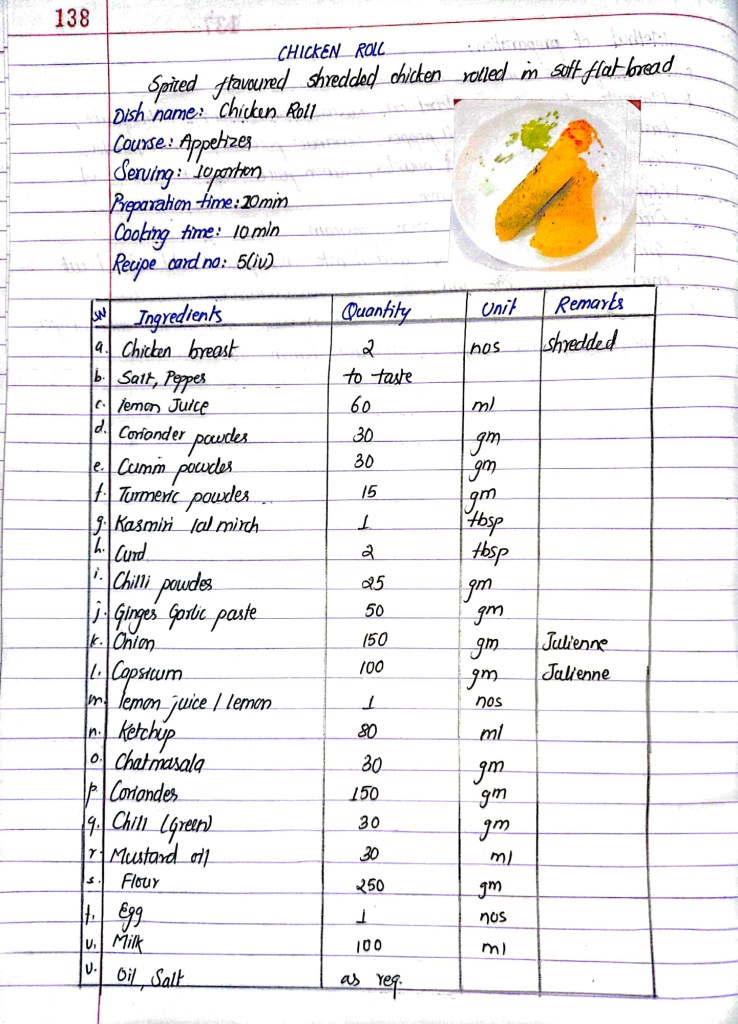 138
CHICKEN ROLL
Spiced flavoured shredded chicken rolled in soft flat bread
Dish name: Chicken Roll
Course: Appetizer
Serving: 10 portion
Preparation time: 20 min
Cooking time: 10 min
Recipe card no: 5(iv)
SN Ingredients Quantity Unit Remarks
a. Chicken breast 2 nos shredded
b. Salt, Pepper to taste
c. lemon Juice 60 ml
d. Coriander powder 30 gm
e. Cumin powder 30 gm
f. Turmeric powder 15 gm
g. Kasmiri lal mirch 1 tbsp
h. Curd 2 tbsp
i. Chilli powder 25 gm
j. Ginger Garlic paste 50 gm
k. Onion 150 gm Julienne
l. Capsicum 100 gm Julienne
m. lemon juice / lemon 1 nos
n. Ketchup 80 ml
o. Chatmasala 30 gm
p. Coriander 150 gm
q. Chilli (Green) 30 gm
r. Mustard oil 30 ml
s. Flour 250 gm
t. Egg 1 nos
u. Milk 100 ml
v. Oil, Salt as req.